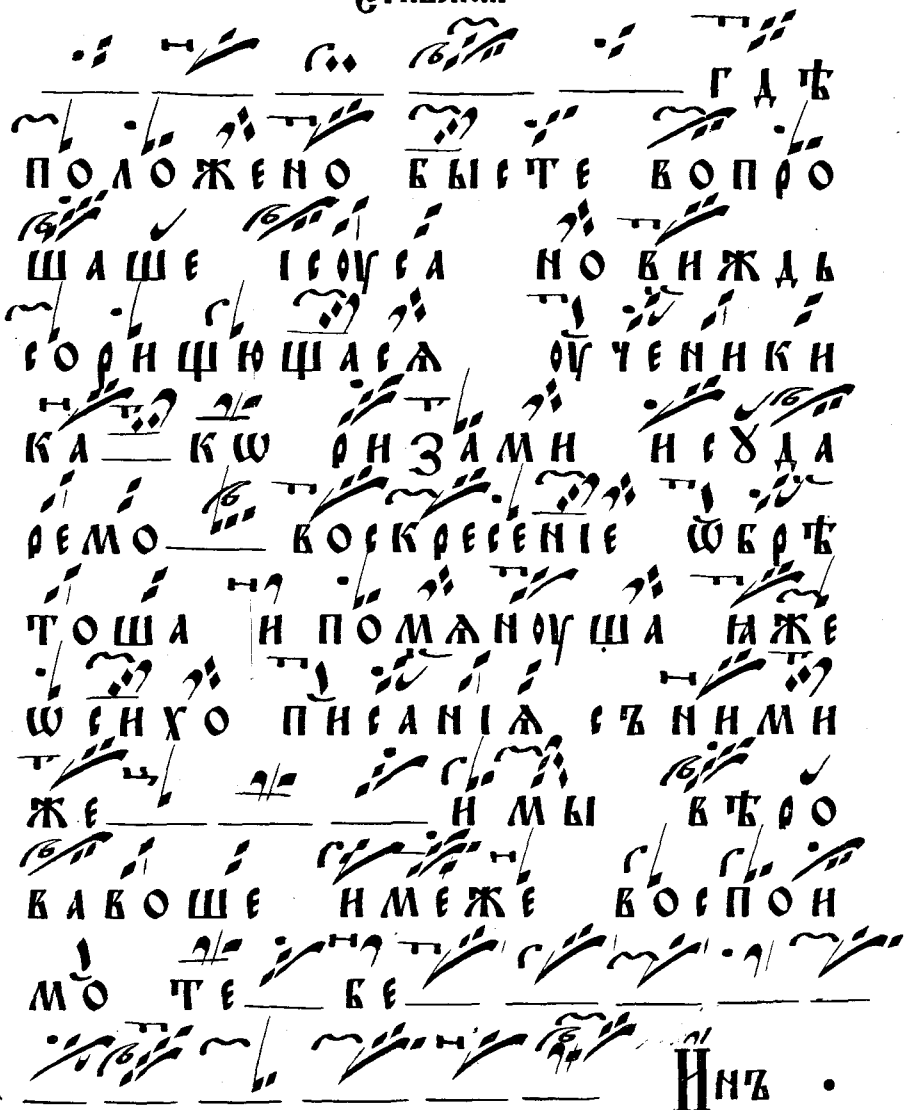 гдѣ
положено бысте вопро
шаше ісꙋса но виждь
сорищющася оученики
ка кѡ ризами и сꙋда
ремо воскресеніе ѿбрѣ
тоша и помѧноуша ꙗже
ѡ сихо писаніѧ съ ними
же и мы вѣро
вавоше имеже воспои
мо те бе
Инъ